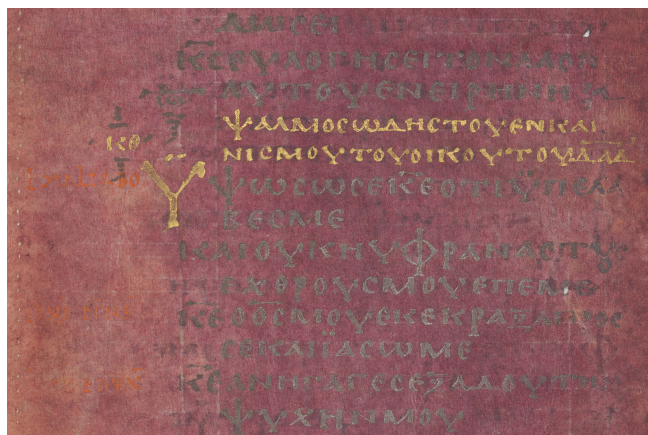 ΔΩϹΕΙ
ΚϹ̅ΕΥΛΟΓΗϹΕΙΤΟΝΛΑΟΝ
ΑΥΤΟΥΕΝΕΙΡΗΝΗ
ΨΑΛΜΟϹΩΔΗϹΤΟΥΕΝΚΑΙ
ΚΘ
ΝΙϹΜΟΥΤΟΥΟΙΚΟΥΤΟΥΔ̅Α̅Δ̅
ΫΨΩϹΩϹΕΚ̅Ε̅ΟΤΙΫΠΕΛΑ
ΒΕϹΜΕ
ΚΑΙΟΥΚΗΥΦΡΑΝΑϹΤΟΥϹ
ΕΧΘΡΟΥϹΜΟΥΕΠΕΜΕ
Κ̅Ε̅ΟΘ̅Ϲ̅ΜΟΥΕΚΕΚΡΑΞΑΠΡΟϹ
ϹΕΚΑΙΪΑϹΩΜΕ
Κ̅Ε̅ΑΝΗΓΑΓΕϹΕΞΑΔΟΥΤΗΝ
ΨΥΧΗΝΜΟΥ